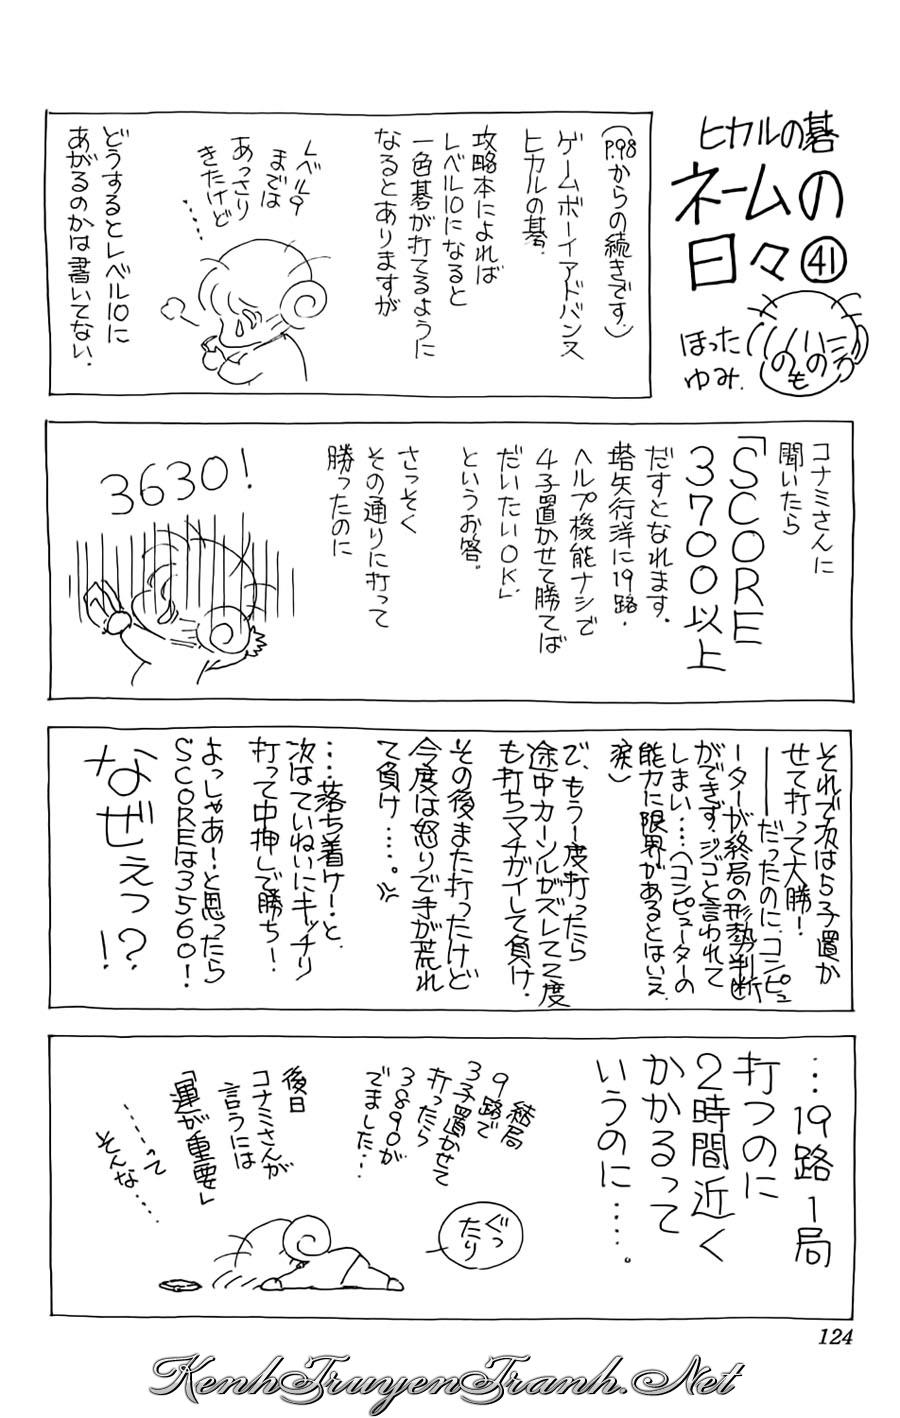 ヒカルの碁
ネームの
日々㊶
ほった
ゆみ.
へのへのもへじ
(P.98からの続きです.)
ゲームボーイアドバンス
ヒカルの碁.
攻略本によれば
レベル10になると
一色碁が打てるように
なるとありますが
レベル9
までは
あっさり
きたけど
……
どうするとレベル10に
あがるのかは書いてない.
コナミさんに
聞いたら
「SCORE
3700以上
だすとなれます.
塔矢行洋に19路.
ヘルプ機能ナシで
4子置かせて勝てば
だいたいOK」
というお答.
さっそく
その通りに打って
勝ったのに
3630!
それで次は5子置か
せて打って大勝!
――だったのに、コンピュ
ーターが終局の形勢判断
ができず.ジゴと言われて
しまい……(コンピューターの
能力に限界があるとはいえ
涙)
で、もう1度打ったら
途中カーソルがズレて2度
も打ちマチガイして負け.
その後また打ったけど
今度は怒りで手が荒れ
て負け……。
……落ち着け!と、
次はていねいにキッチリ
打って中押しで勝ち!
よっしゃあ!と思ったら
SCOREは3560!
なぜぇっ!?
…19路1局
打つのに
2時間近く
かかるって
いうのに……。
ぐっ
たり
結局
9路で
3子置かせて
打ったら
3890が
でました…
後日
コナミさんが
言うには
「運が重要」
……って
そんな….
124
KenhTruyenTranh.Net